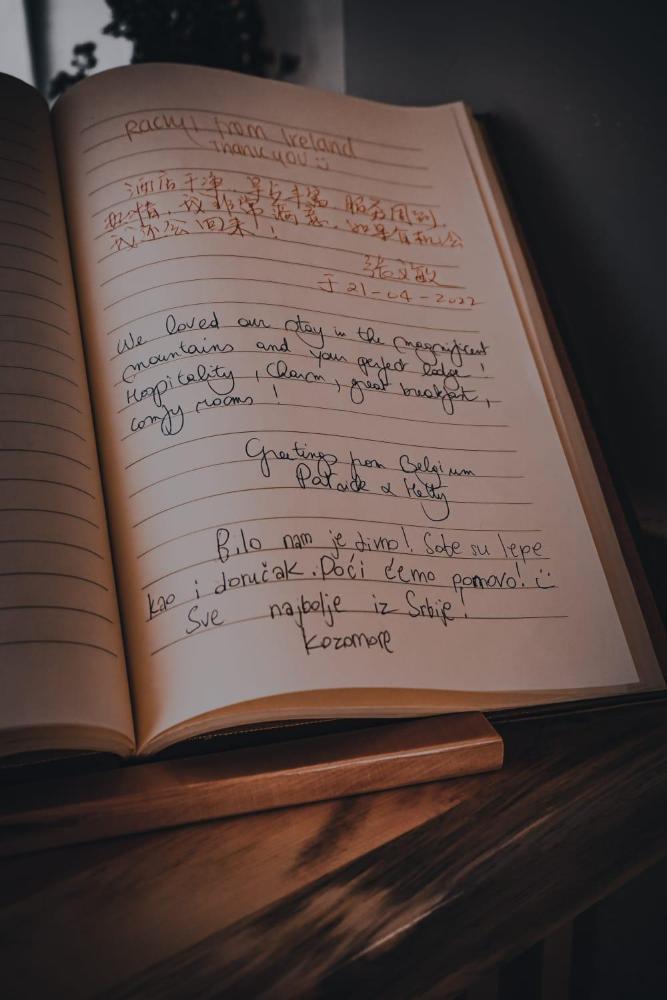 from Ireland
Thank you ::)
酒店干净, 早点丰富 服务周到,
热情, 我非常满意. 如果有机会
我还会回来!
张文敏
于 21-04-2022
We loved our stay in the magnificent
mountains and your perfect lodge!
Hospitality, Charm, great breakfast,
comfy rooms!
Greetings from Belgium
& Hetty
Bilo nam je divno! Sobe su lepe
kao i doručak. Doći ćemo ponovo! ::)
Sve najbolje iz Srbije!